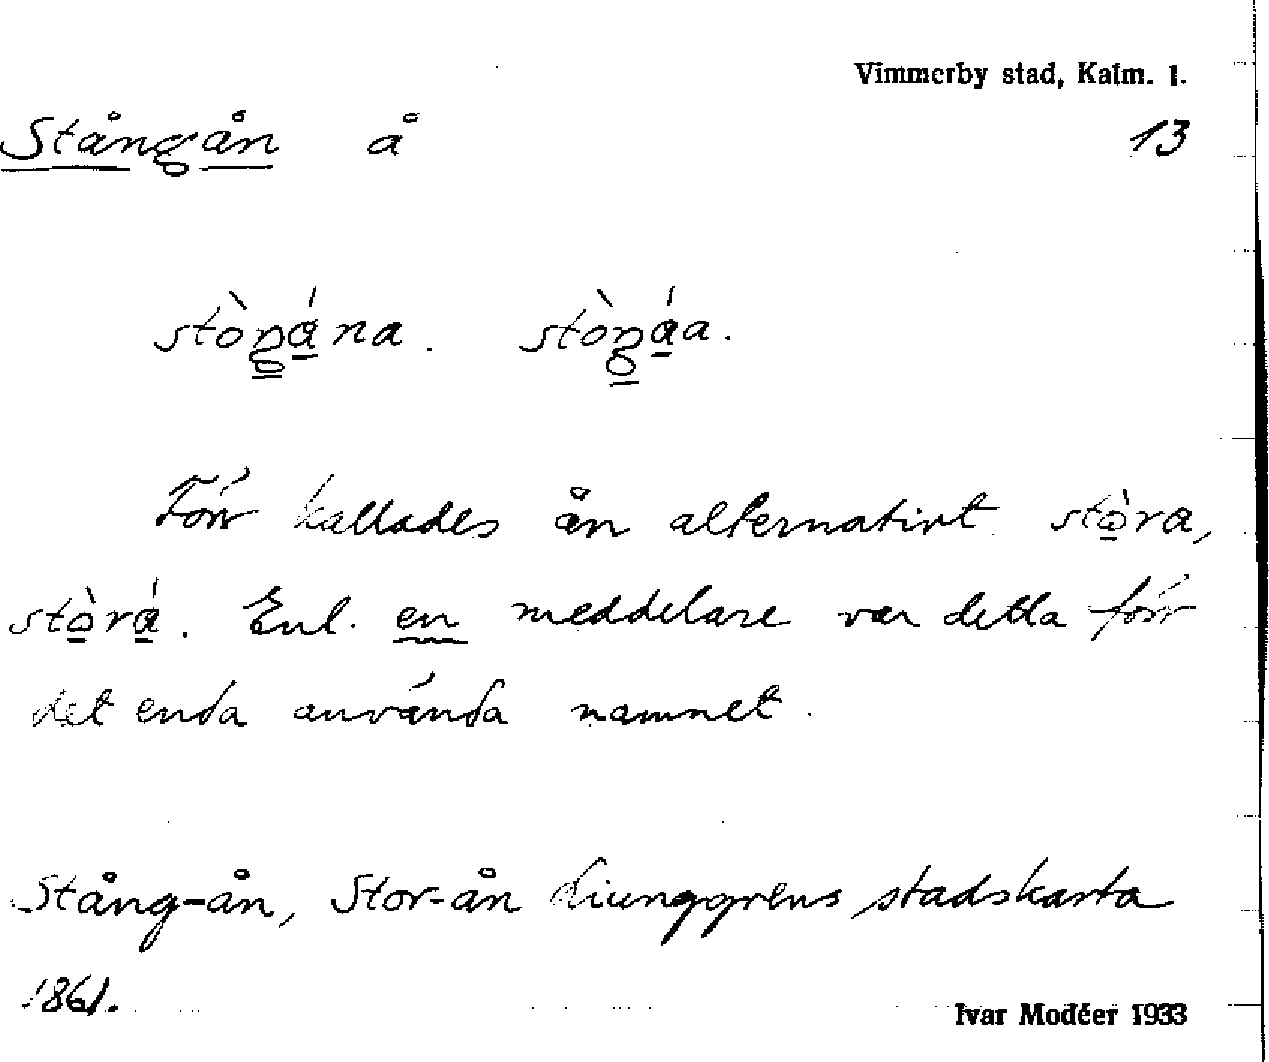 Vimmerby stad, Kalm. l.
Stångån å 13
stòŋána. stòŋáa.
Förr kallades ån alternativt stòra,
stòrá. Enl. en meddelare var detta förr
det enda använda namnet.
Stång-ån, Stor-ån Liunggrens stadskarta
1861.
Ivar Modéer 1933